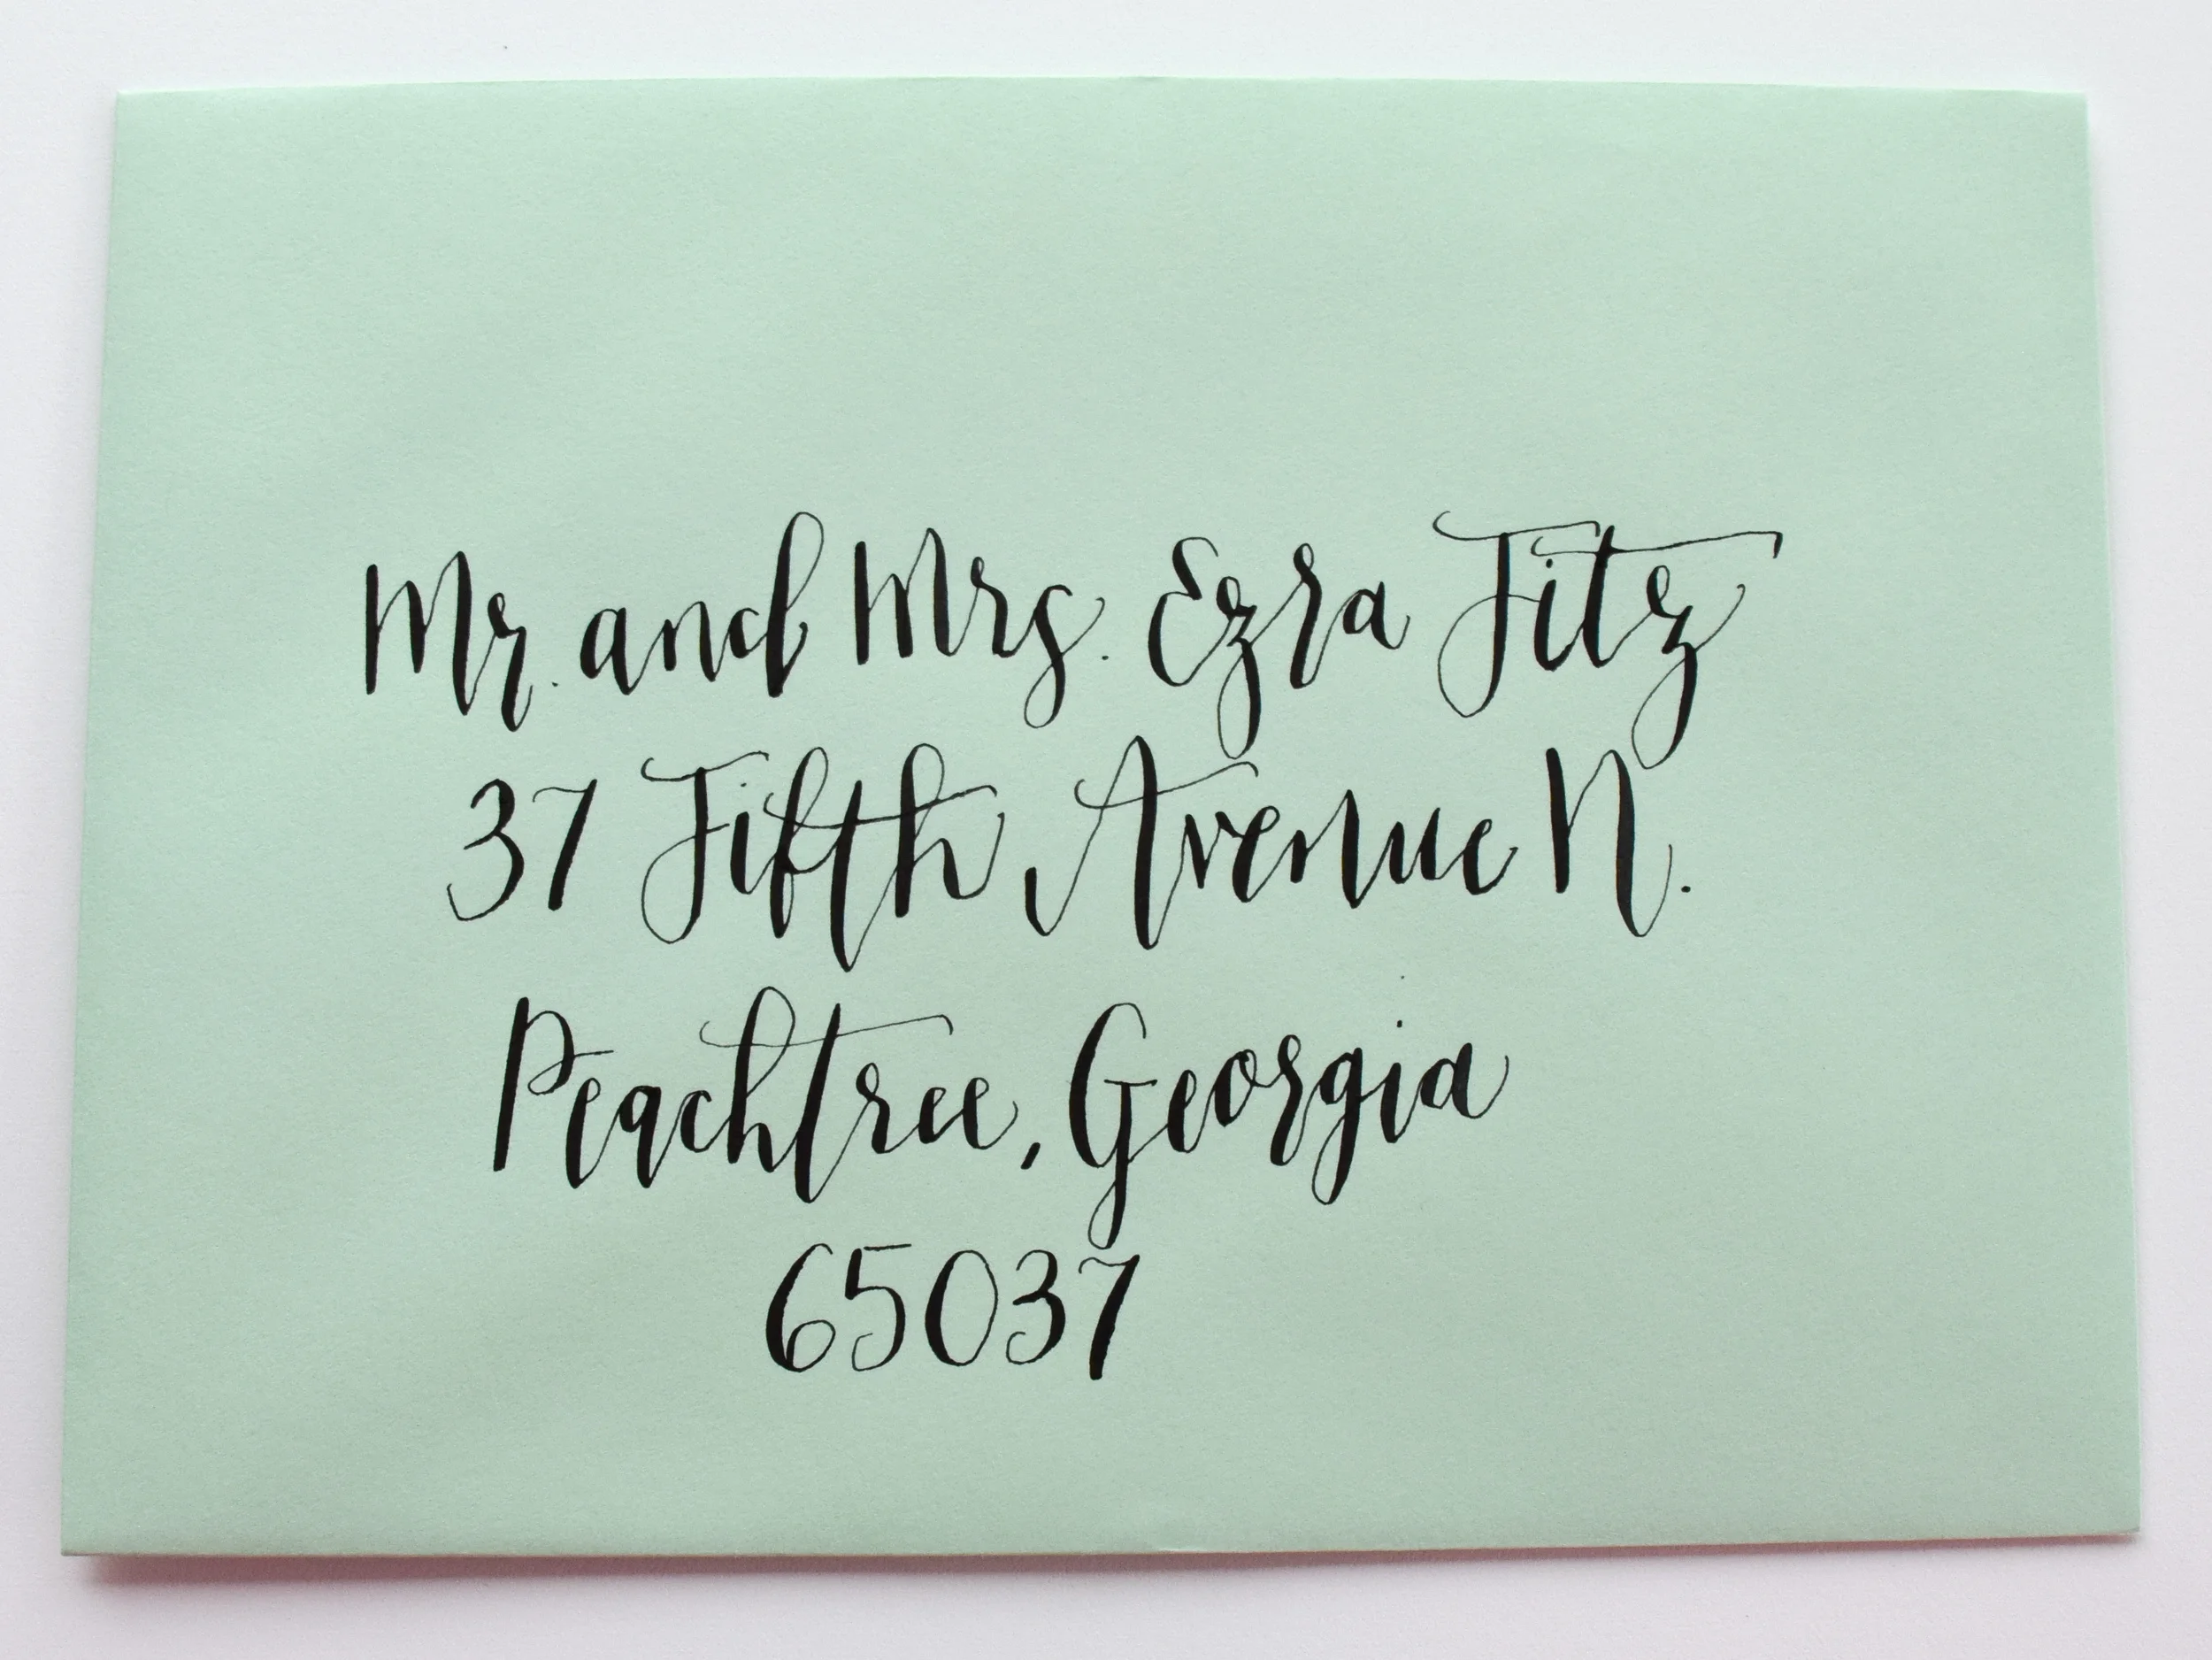 Mr. and Mrs. Ezra Fitz
37 Fifth Avenue N.
Peachtree, Georgia
65037